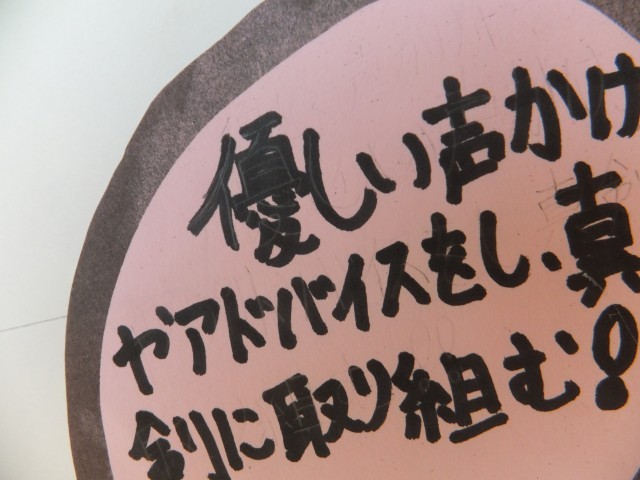 優しい声かけ
やアドバイスをし、真
剣に取り組む!